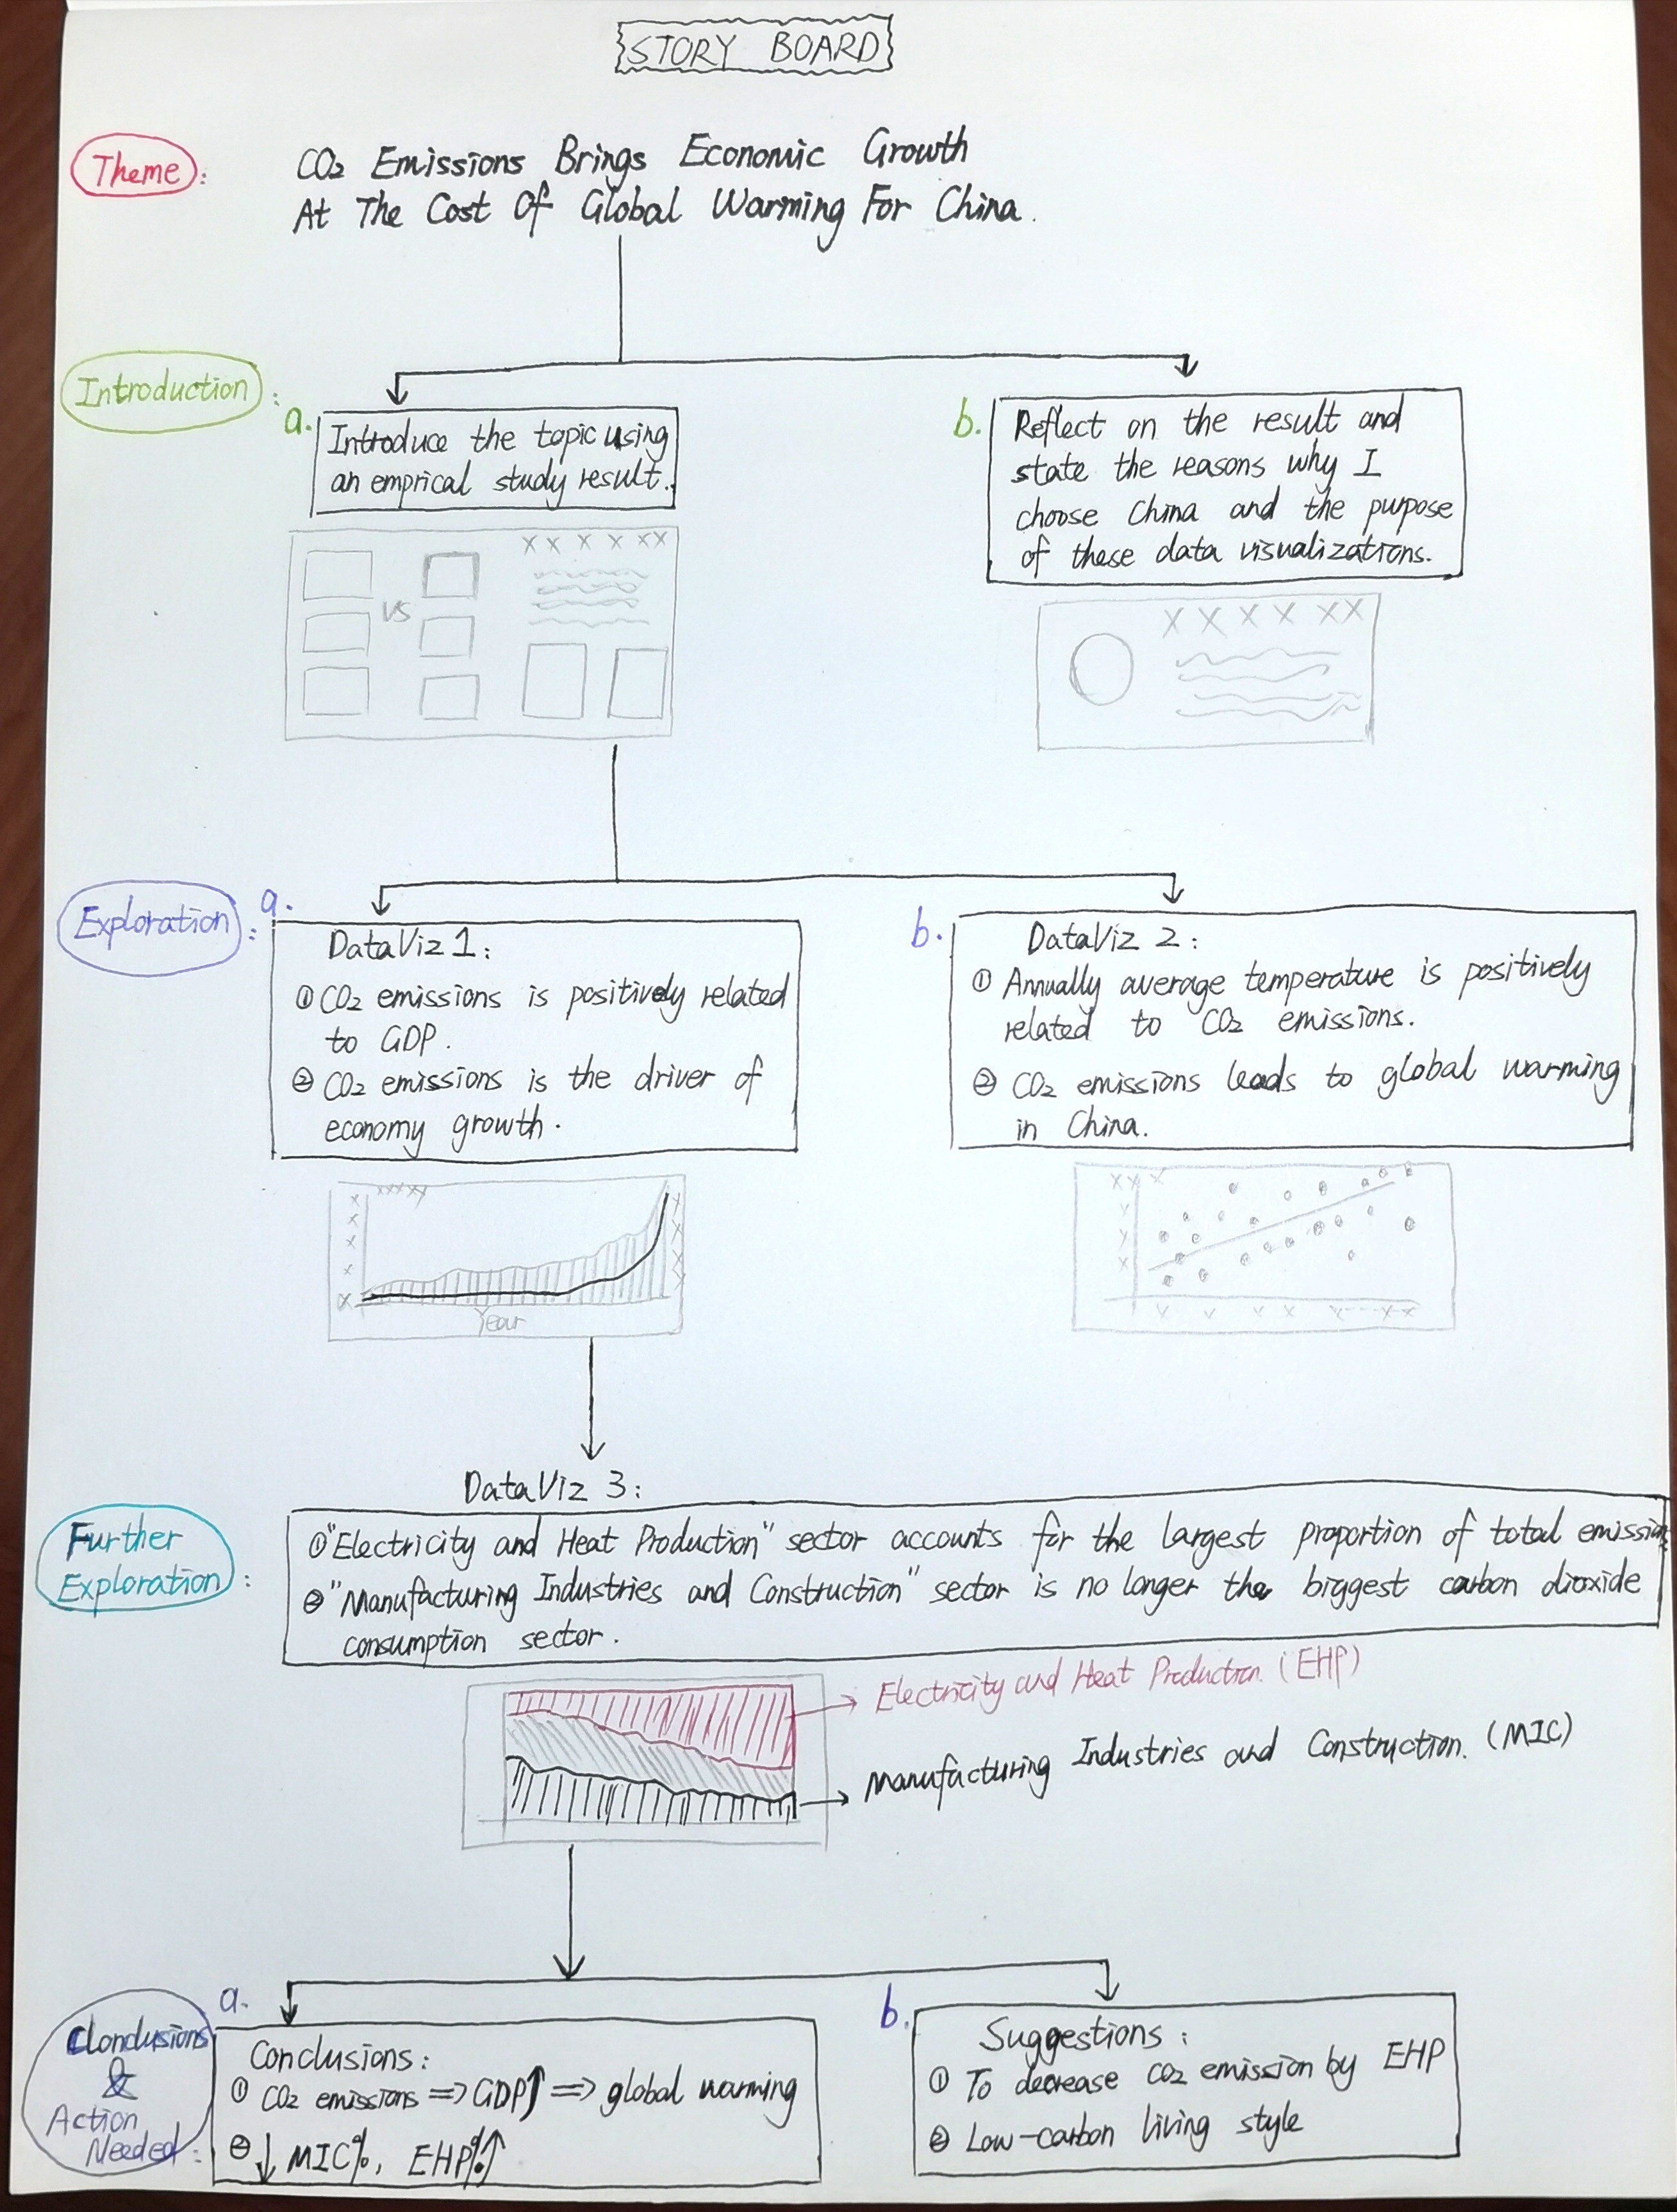 STORY BOARD
Theme:
CO2 Emissions Brings Economic Growth
At The Cost Of Global Warming For China.
Introduction:
a.
Introduce the topic using
an emprical study result.
b.
Reflect on the result and
state the reasons why I
choose China and the purpose
of these data visualizations.
X X X X X X
VS
X X X X X X
Exploration:
a.
DataViz 1:
① CO2 emissions is positively related
to GDP.
② CO2 emissions is the driver of
economy growth.
b.
DataViz 2:
① Annually average temperature is positively
related to CO2 emissions.
② CO2 emissions leads to global warming
in China.
Year
DataViz 3:
Further
Exploration:
① "Electricity and Heat Production" sector accounts for the largest proportion of total emission
② "Manufacturing Industries and Construction" sector is no longer the biggest carbon dioxide
consumption sector.
Electricity and Heat Production. (EHP)
Manufacturing Industries and Construction. (MIC)
Clonclusions
&
Action
Needed:
a.
Conclusions:
① CO2 emissions => GDP↑ => global warming
② ↓ MIC%, EHP%↑
b.
Suggestions:
① To decrease CO2 emission by EHP
② Low-carbon living style